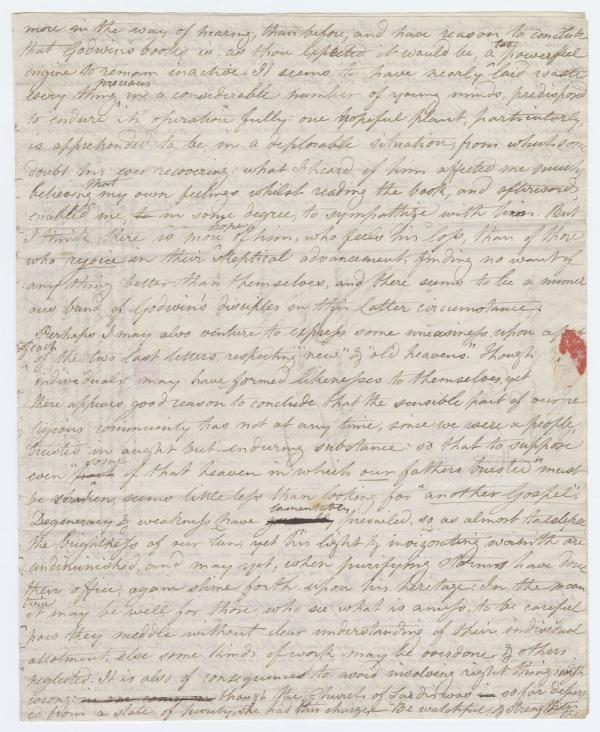 more in the way of hearing, than before, and have reason to conclude
that Godwin's book is, as thou expected it would be, a too powerful
engine to remain inactive. It seems to have nearly laid waste
every thing precious in a considerable number of young minds, predisposed
to endure its operation fully: one hopeful plant, particularly,
is apprehended to be in a deplorable situation, from which some
doubt his ever recovering: what I heard of him affected me much,
believing that my own feelings whilst reading the book, and afterwards,
enabled me, to in some degree, to sympathize with him. But
I think there is more hope of him, who feels his loss, than of those
who rejoice in their skeptical advancement, finding no want of
any thing better than themselves, and there seems to be a numer
ous band of Godwin's disciples in this latter circumstance.
Perhaps I may also venture to express some uneasiness, upon a
of each of the two last letters, respecting "new" & "old heavens." Though
individuals may have formed likenesses to themselves, yet
there appears good reason to conclude that the sensible part of our re
ligious community has not at any time, since we were a people,
trusted in aught but enduring substance: so that to suppose
even "some of that heaven in which our fathers trusted" must
be shaken, seems little less than looking for "another Gospel".
Degeneracy & weakness have lamentably prevailed, so as almost to eclipse
the brightness of our sun, yet his light & invigorating warmth are
undiminished, and may yet, when purifying storms have done
their office, again shine forth upon his heritage. In the mean
time it may be well for those who see what is amiss, to be careful
how they meddle without clear understanding of their individual
allotment, else some kinds of work may be overdone & others
neglected. It is also of consequence to avoid involving right things with
wrong: though the Church of Sardis was so far depart
ed from a state of purity, she had this charge, "Be watchful, & strengthen